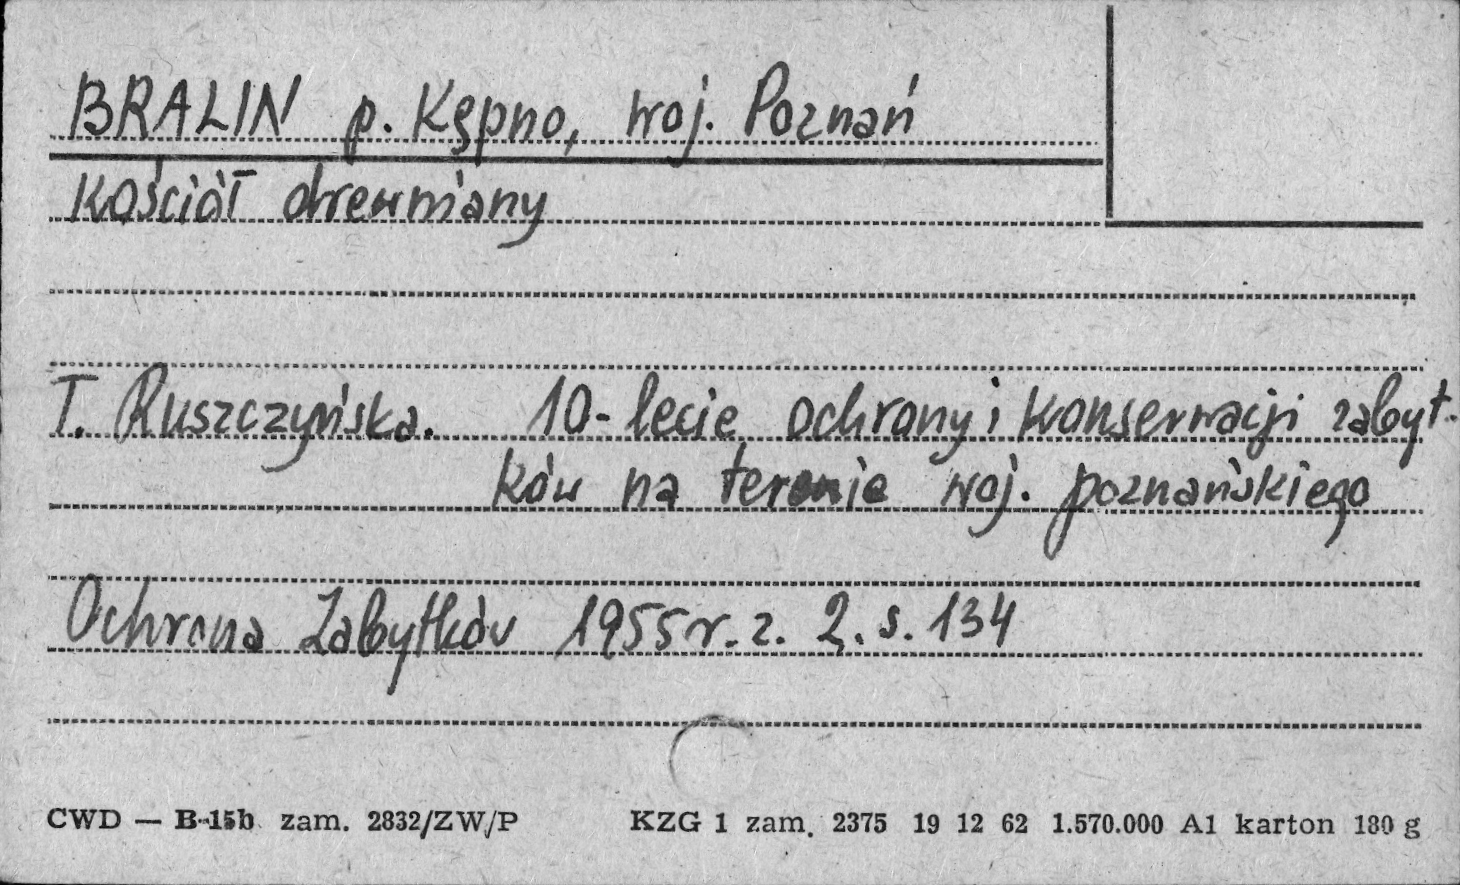 BRALIN p. Kępno, woj. Poznań
Kościół drewniany
T. Ruszczyńska. 10-lecie ochrony i konserwacji zabyt-
ków na terenie woj. poznańskiego
Ochrona Zabytków 1955 r. z. 2. s. 134
CWD — B-15b zam. 2832/ZW/P KZG 1 zam. 2375 19 12 62 1.570.000 A1 karton 180 g